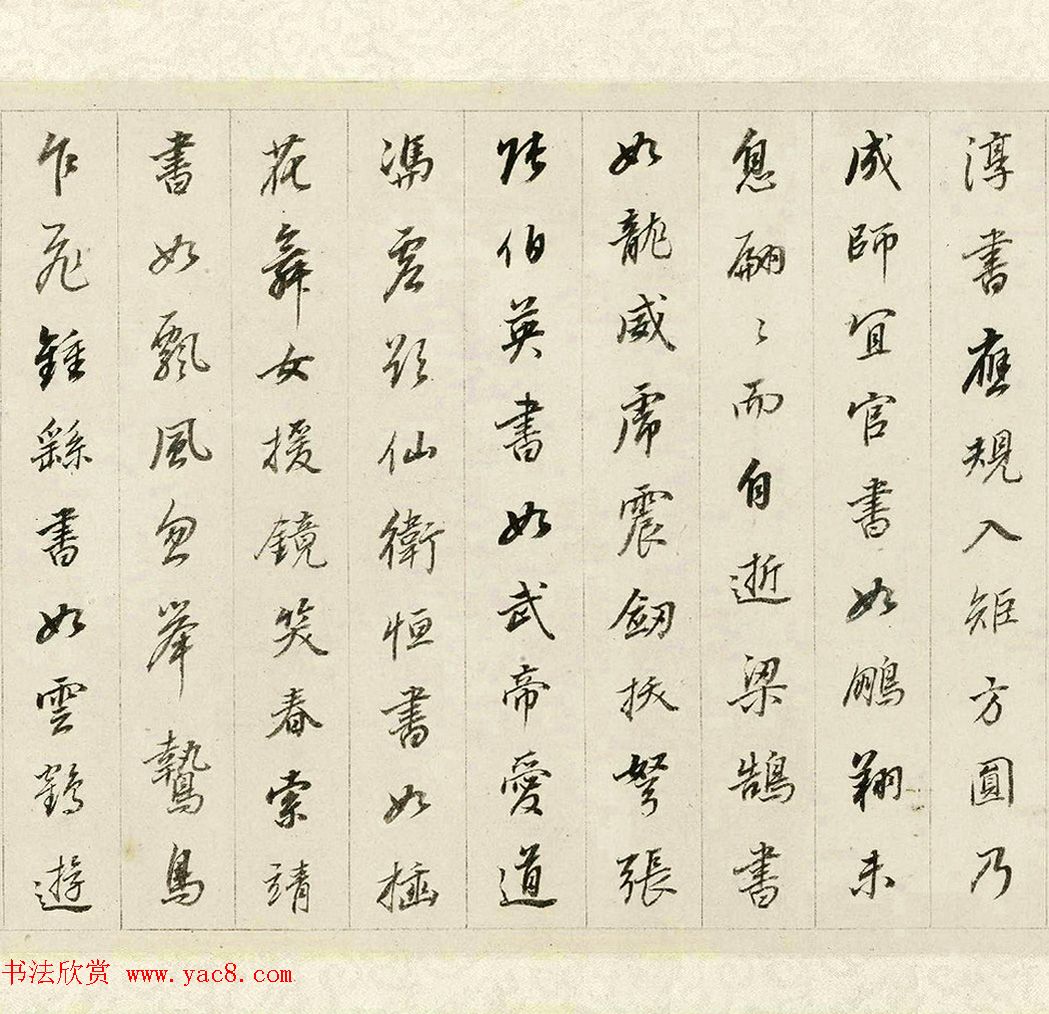 淳書應規入矩方圓乃
成師宜官書如鵬翔未
息翩〻而自逝梁鵠書
如龍威虎震劔拔弩張
張伯英書如武帝愛道
馮虛欲仙衛恒書如插
花舞女援鏡笑春索靖
書如飄風忽舉鷙鳥
乍飛鍾繇書如雲鶴遊
书法欣赏 www.yac8.com